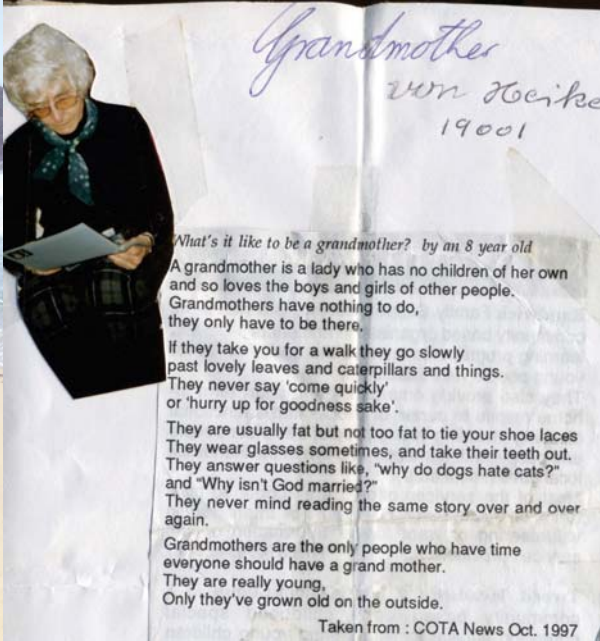 Grandmother
von Heike
19001
What's it like to be a grandmother? by an 8 year old
A grandmother is a lady who has no children of her own
and so loves the boys and girls of other people.
Grandmothers have nothing to do,
they only have to be there.
If they take you for a walk they go slowly
past lovely leaves and caterpillars and things.
They never say 'come quickly'
or 'hurry up for goodness sake'.
They are usually fat but not too fat to tie your shoe laces
They wear glasses sometimes, and take their teeth out.
They answer questions like, "why do dogs hate cats?"
and "Why isn't God married?"
They never mind reading the same story over and over
again.
Grandmothers are the only people who have time
everyone should have a grand mother.
They are really young,
Only they've grown old on the outside.
Taken from : COTA News Oct. 1997